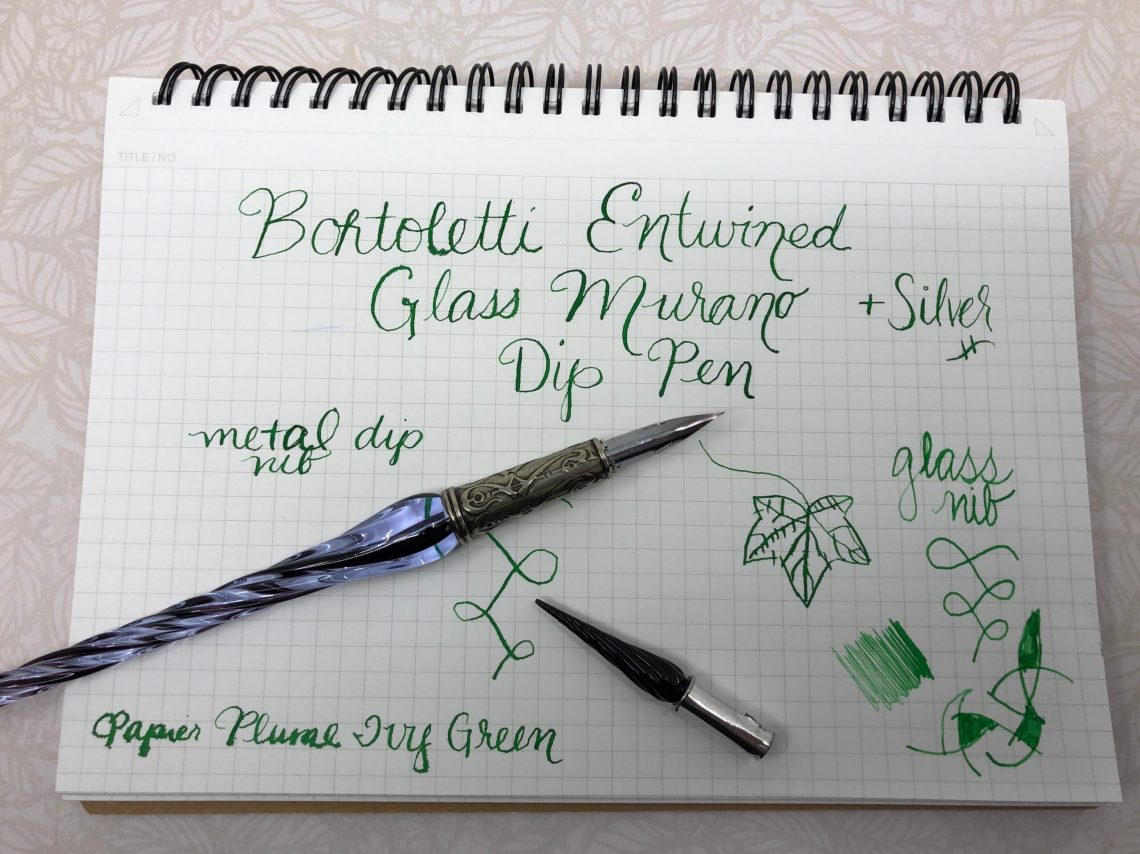 TITLE / NO.
Bortoletti Entwined
Glass Murano + Silver
Dip Pen
metal dip
nib
glass
nib
Papier Plume Ivy Green